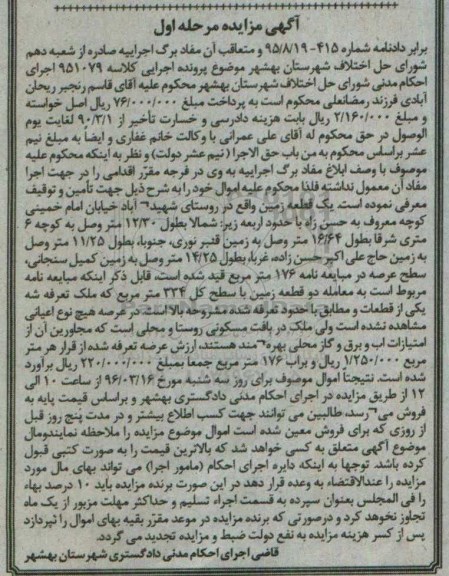 آگهی مزایده مرحله اول
برابر دادنامه شماره ۴۱۵-۹۵/۸/۱۹ و متعاقب آن مفاد برگ اجراییه صادره از شعبه دهم
شورای حل اختلاف شهرستان بهشهر موضوع پرونده اجرایی کلاسه ۹۵۱۰۷۹ اجرای
احکام مدنی شورای حل اختلاف شهرستان بهشهر محکوم علیه آقای قاسم رنجبر ریحان
آبادی فرزند رمضانعلی محکوم است به پرداخت مبلغ ۷۶/۰۰۰/۰۰۰ ریال اصل خواسته
و مبلغ ۲/۱۶۰/۰۰۰ ریال بابت هزینه دادرسی و خسارت تأخیر از ۹۰/۳/۱ لغایت یوم
الوصول در حق محکوم له آقای علی عمرانی با وکالت خانم غفاری و ایضاً به مبلغ نیم
عشر براساس محکوم به من باب حق الاجرا (نیم عشر دولت) و نظر به اینکه محکوم علیه
موصوف با وصف ابلاغ مفاد برگ اجراییه به وی در فرجه مقرّر اقدامی را در جهت اجرا
مفاد آن معمول نداشته فلذا محکوم علیه اموال خود را به شرح ذیل جهت تأمین و توقیف
معرفی نموده است. یک قطعه زمین واقع در روستای شهید¬ آباد خیابان امام خمینی
کوچه معروف به حسن زاده با حدود اربعه زیر: شمالا بطول ۱۲/۳۰ متر وصل به کوچه ۶
متری شرقا بطول ۱۶/۶۴ متر وصل به زمین قنبر نوری، جنوبا، بطول ۱۱/۲۵ متر وصل
به زمین حاج علی اکبر حسن زاده، غربا، بطول ۱۴/۲۵ متر وصل به زمین کمیل سنجانی،
سطح عرصه در مبایعه نامه ۱۷۶ متر مربع قید شده است، قابل ذکر اینکه مبایعه نامه
مربوط است به معامله دو قطعه زمین با سطح کل ۳۳۴ متر مربع که ملک تعرفه شه
یکی از قطعات و مطابق با حدود تعرفه شده مشروحه بالا است در عرصه هیچ نوع اعیانی
مشاهده نشده است ولی ملک در بافت مسکونی روستا و محلی است که مجاورین آن از
امتیازات اب و برق و گاز محلی بهره¬مند هستند، ارزش عرصه تعرفه شده از قرار هر متر
مربع ۱/۲۵۰/۰۰۰ ریال و براب ۱۷۶ متر مربع جمعا بمبلغ ۲۲۰/۰۰۰/۰۰۰ ریال برآورد
شده است. نتیجتا اموال موصوف برای روز سه شنبه مورخ ۹۶/۰۳/۱۶ از ساعت ۱۰ الی
۱۲ از طریق مزایده در اجرای احکام مدنی دادگستری بهشهر و براساس قیمت پایه به
فروش می¬رسد، طالبین می توانند جهت کسب اطلاع بیشتر و در مدت پنج روز قبل
از روزی که برای فروش معین شده است اموال موضوع مزایده را ملاحظه نمایندومال
موضوع آگهی متعلق به کسی خواهد شد که بالاترین قیمت را به صورت کتبی قبول
کرده باشد. توجها به اینکه دایره اجرای احکام (مامور اجرا) می تواند بهای مال مورد
مزایده را عندالاقتضاء به وعده قرار دهد در این صورت برنده مزایده باید ۱۰ درصد بهاء
را فی المجلس بعنوان سپرده به قسمت اجراء تسلیم و حداکثر مهلت مزبور از یک ماه
تجاوز نخوهد کرد و درصورتی که برنده مزایده در موعد مقرّر بقیه بهای اموال را نپردازد
پس از کسر هزینه مزایده به نفع دولت ضبط و مزایده تجدید می گردد.
قاضی اجرای احکام مدنی دادگستری شهرستان بهشهر